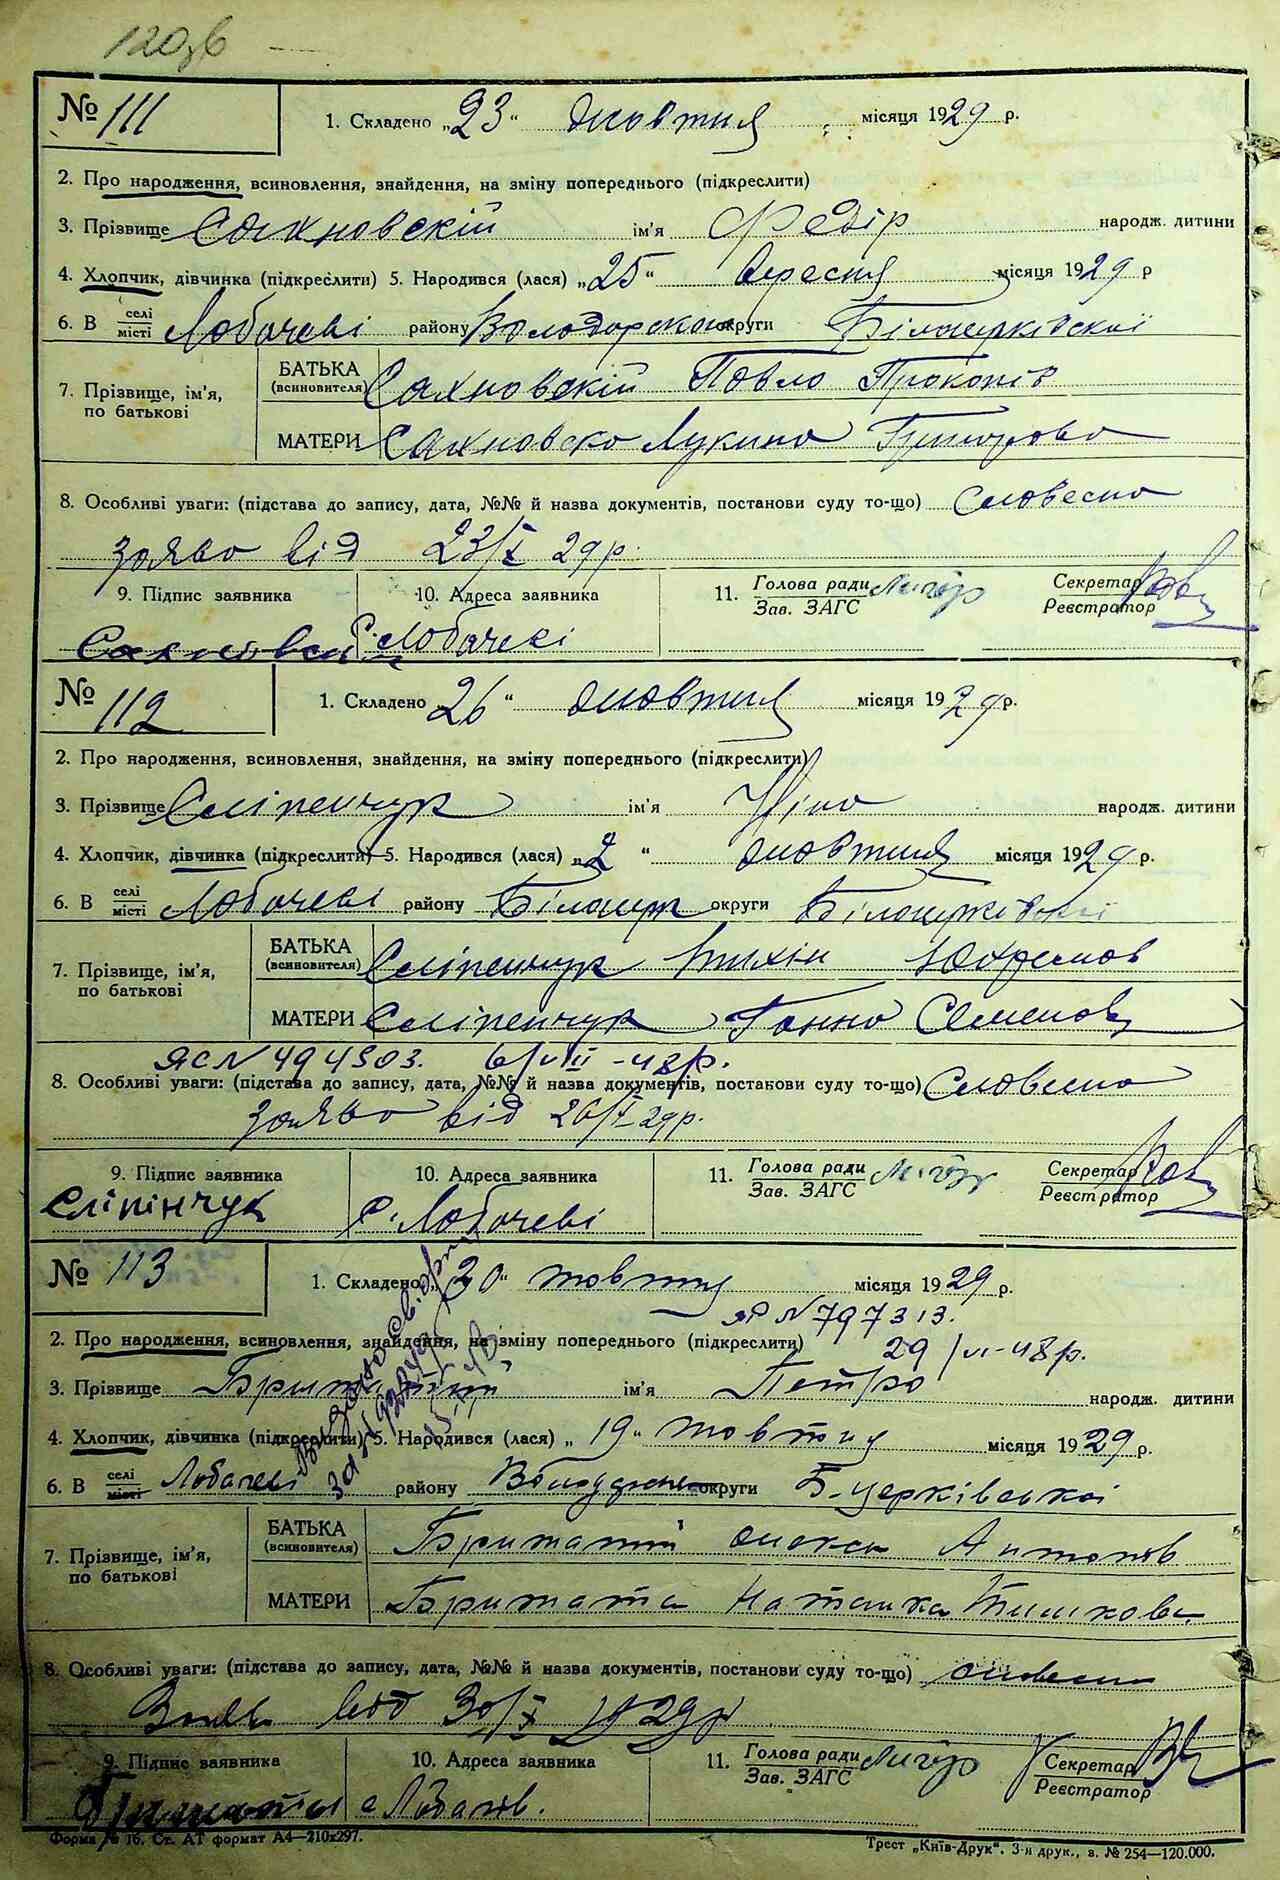 120зв
№ 111
1. Складено „23“ жовтня місяця 1929 р.
2. Про народження, всиновлення, знайдення, на зміну попереднього (підкреслити)
3. Прізвище Сахновскій ім'я Федір народж. дитини
4. Хлопчик, дівчинка (підкреслити) 5. Народився (лася) „25“ вересня місяця 1929 р
6. В селі Лобачеві району округи Білоцерківскої
місті
БАТЬКА Сахновскій Павло Прокопів
(всиновителя)
7. Прізвище, ім'я,
по батькові
МАТЕРИ Сахновска Лукина
8. Особліві уваги: (підстава до запису, дата, №№ й назва документів, постанови суду то-що) Словесна
заява від 23/X 29р.
9. Підпис заявника 10. Адреса заявника 11. Голова ради Секретар
Зав. ЗАГС Реєстратор
с. Лобачеві
№ 112
1. Складено 26“ жовтня місяця 1929 р.
2. Про народження, всиновлення, знайдення, на зміну попереднього (підкреслити)
3. Прізвище Сліпенчук ім'я Ніна народж. дитини
4. Хлопчик, дівчинка (підкреслити) 5. Народився (лася) „2“ жовтня місяця 1929 р.
6. В селі Лобачеві району Білоцерк округи Білоцерківскої
місті
БАТЬКА Сліпенчук Тихін
(всиновителя)
7. Прізвище, ім'я,
по батькові
МАТЕРИ Сліпенчук Ганна Семенов
ЯС N 494303. 6/VIII-48р.
8. Особліві уваги: (підстава до запису, дата, №№ й назва документів, постанови суду то-що) Словесна
заява від 26/X-29р.
9. Підпис заявника 10. Адреса заявника 11. Голова ради Секретар
Зав. ЗАГС Реєстратор
Сліпінчук с. Лобачеві
№ 113
1. Складено „30“ жовтня місяця 1929 р.
ЯР N 797313.
2. Про народження, всиновлення, знайдення, на зміну попереднього (підкреслити) 29/VI-48р.
3. Прізвище ім'я Петро народж. дитини
4. Хлопчик, дівчинка (підкреслити) 5. Народився (лася) „19“ жовтня місяця 1929 р.
6. В селі Лобачеві району округи Б-церківської
місті
БАТЬКА Олекса Антонів
(всиновителя)
7. Прізвище, ім'я,
по батькові
МАТЕРИ Наталка
8. Особліві уваги: (підстава до запису, дата, №№ й назва документів, постанови суду то-що) словесна
заява від 30/X 1929р
9. Підпис заявника 10. Адреса заявника 11. Голова ради Секретар
Зав. ЗАГС Реєстратор
с Лобачев.
Форма № 16. Ст. АТ формат А4—210х297.
Трест „Київ-Друк“. 3-я друк., з. № 254—120.000.